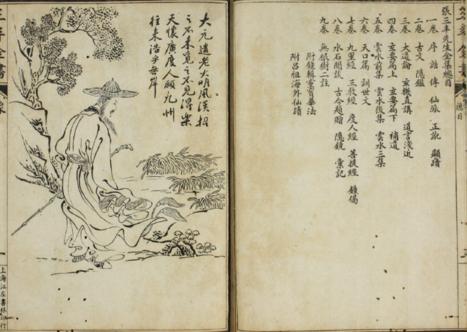 張三丰先生全集總目
一卷 序 誥 傳 仙派 正訛 顯蹟
二卷 古文 隱鏡
三卷 大道論 玄機直講 道言淺近
四卷 玄要篇上 玄要篇下 補遺
五卷 雲水前集 雲水後集 雲水三集
六卷 天口篇 訓世文
七卷 九皇經 三教經 度人經 菩提經 鍾偈
八卷 水石閒談 古今題贈 隱鏡 彙記
九卷 無根樹二註
附呂祖海外仙蹟
大元遺老大明風漢招
之不來覓之不見得樂
天懷廣度人願九州
往來浩乎無岸
上海江左書林印行